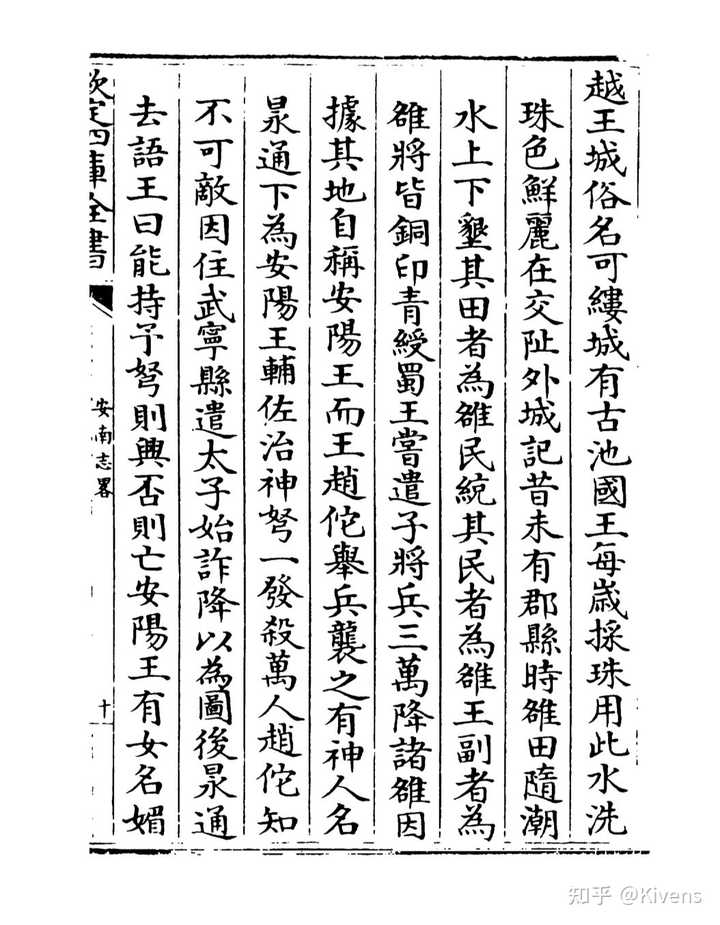 越王城俗名可縷城有古池國王每嵗採珠用此水洗
珠色鮮麗在交阯外城記昔未有郡縣時雒田隨潮
水上下墾其田者為雒民統其民者為雒王副者為
雒將皆銅印青綬蜀王嘗遣子將兵三萬降諸雒因
據其地自稱安陽王而王趙佗舉兵襲之有神人名
泉通下為安陽王輔佐治神弩一發殺萬人趙佗知
不可敵因住武寧縣遣太子始詐降以為圖後泉通
去語王曰能持予弩則興否則亡安陽王有女名媚
欽定四庫全書
安南志畧
十
知乎 @Kivens